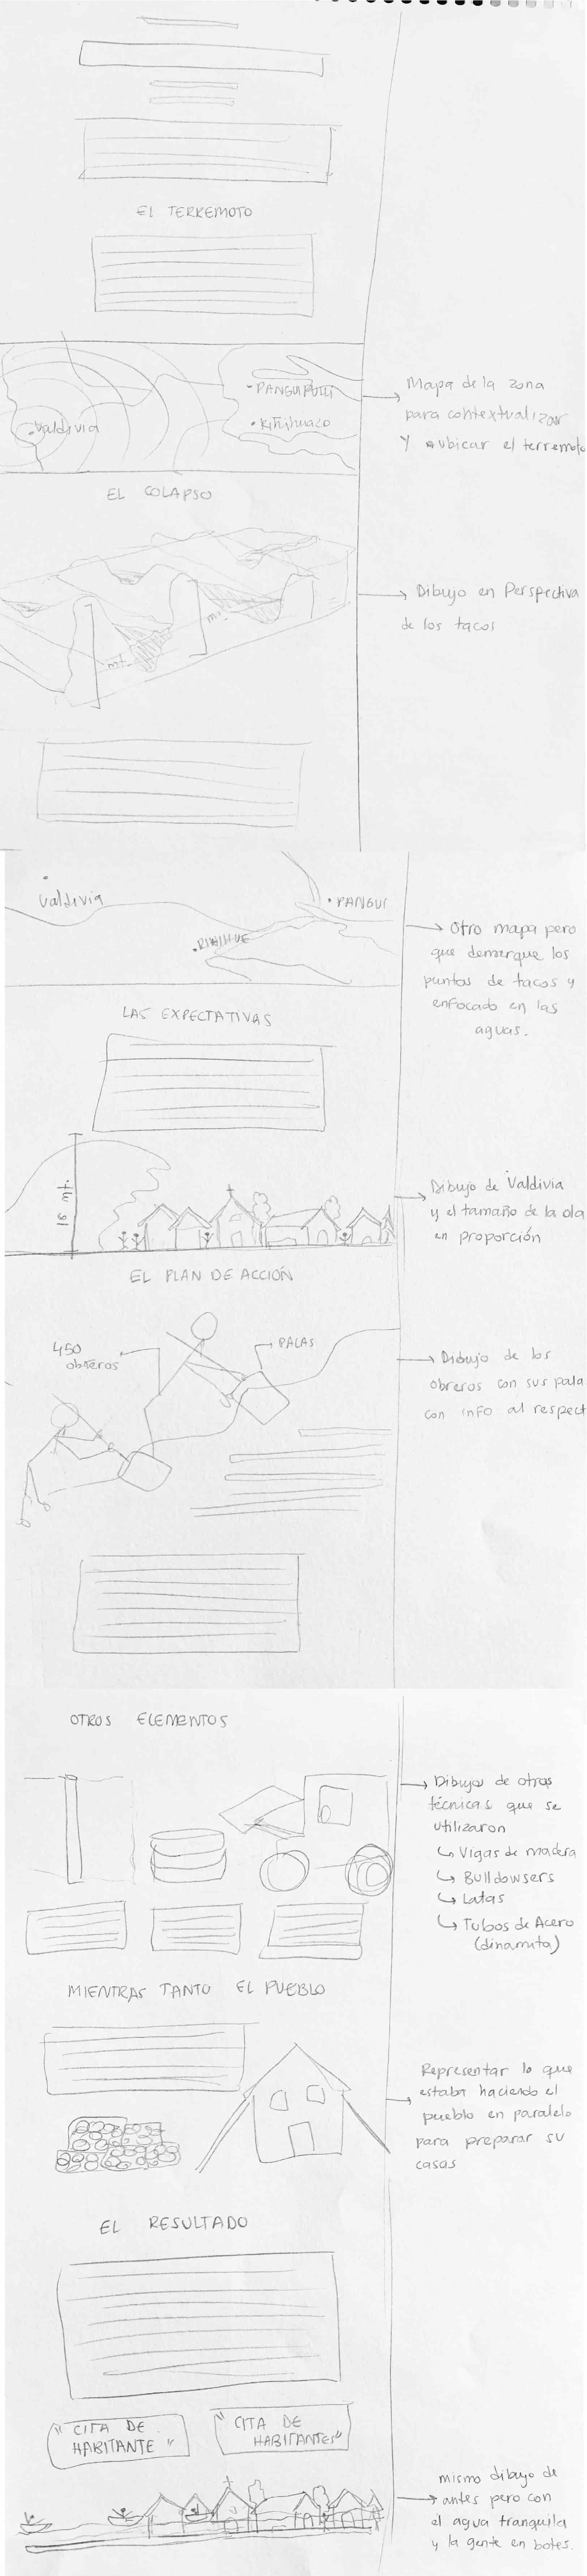 EL TERREMOTO
• PANGUIPULLI
• Riñihuazo
• Valdivia
Mapa de la zona
para contextualizar
y ubicar el terremoto
EL COLAPSO
mt.
mt.
Dibujo en Perspectiva
de los tacos
Valdivia
• PANGUI
• RIÑIHUE
Otro mapa pero
que demarque los
puntos de tacos y
enfocado en las
aguas.
LAS EXPECTATIVAS
16 mt.
Dibujo de Valdivia
y el tamaño de la ola
en proporción
EL PLAN DE ACCIÓN
450
obreros
PALAS
Dibujo de los
obreros con sus pala
con info al respect
OTROS ELEMENTOS
Dibujos de otras
técnicas que se
utilizaron
↳ Vigas de madera
↳ Bulldowsers
↳ Latas
↳ Tubos de Acero
(dinamita)
MIENTRAS TANTO EL PUEBLO
Representar lo que
estaba haciendo el
pueblo en paralelo
para preparar su
casas
EL RESULTADO
"CITA DE
HABITANTE"
"CITA DE
HABITANTES"
mismo dibujo de
antes pero con
el agua tranquila
y la gente en botes.